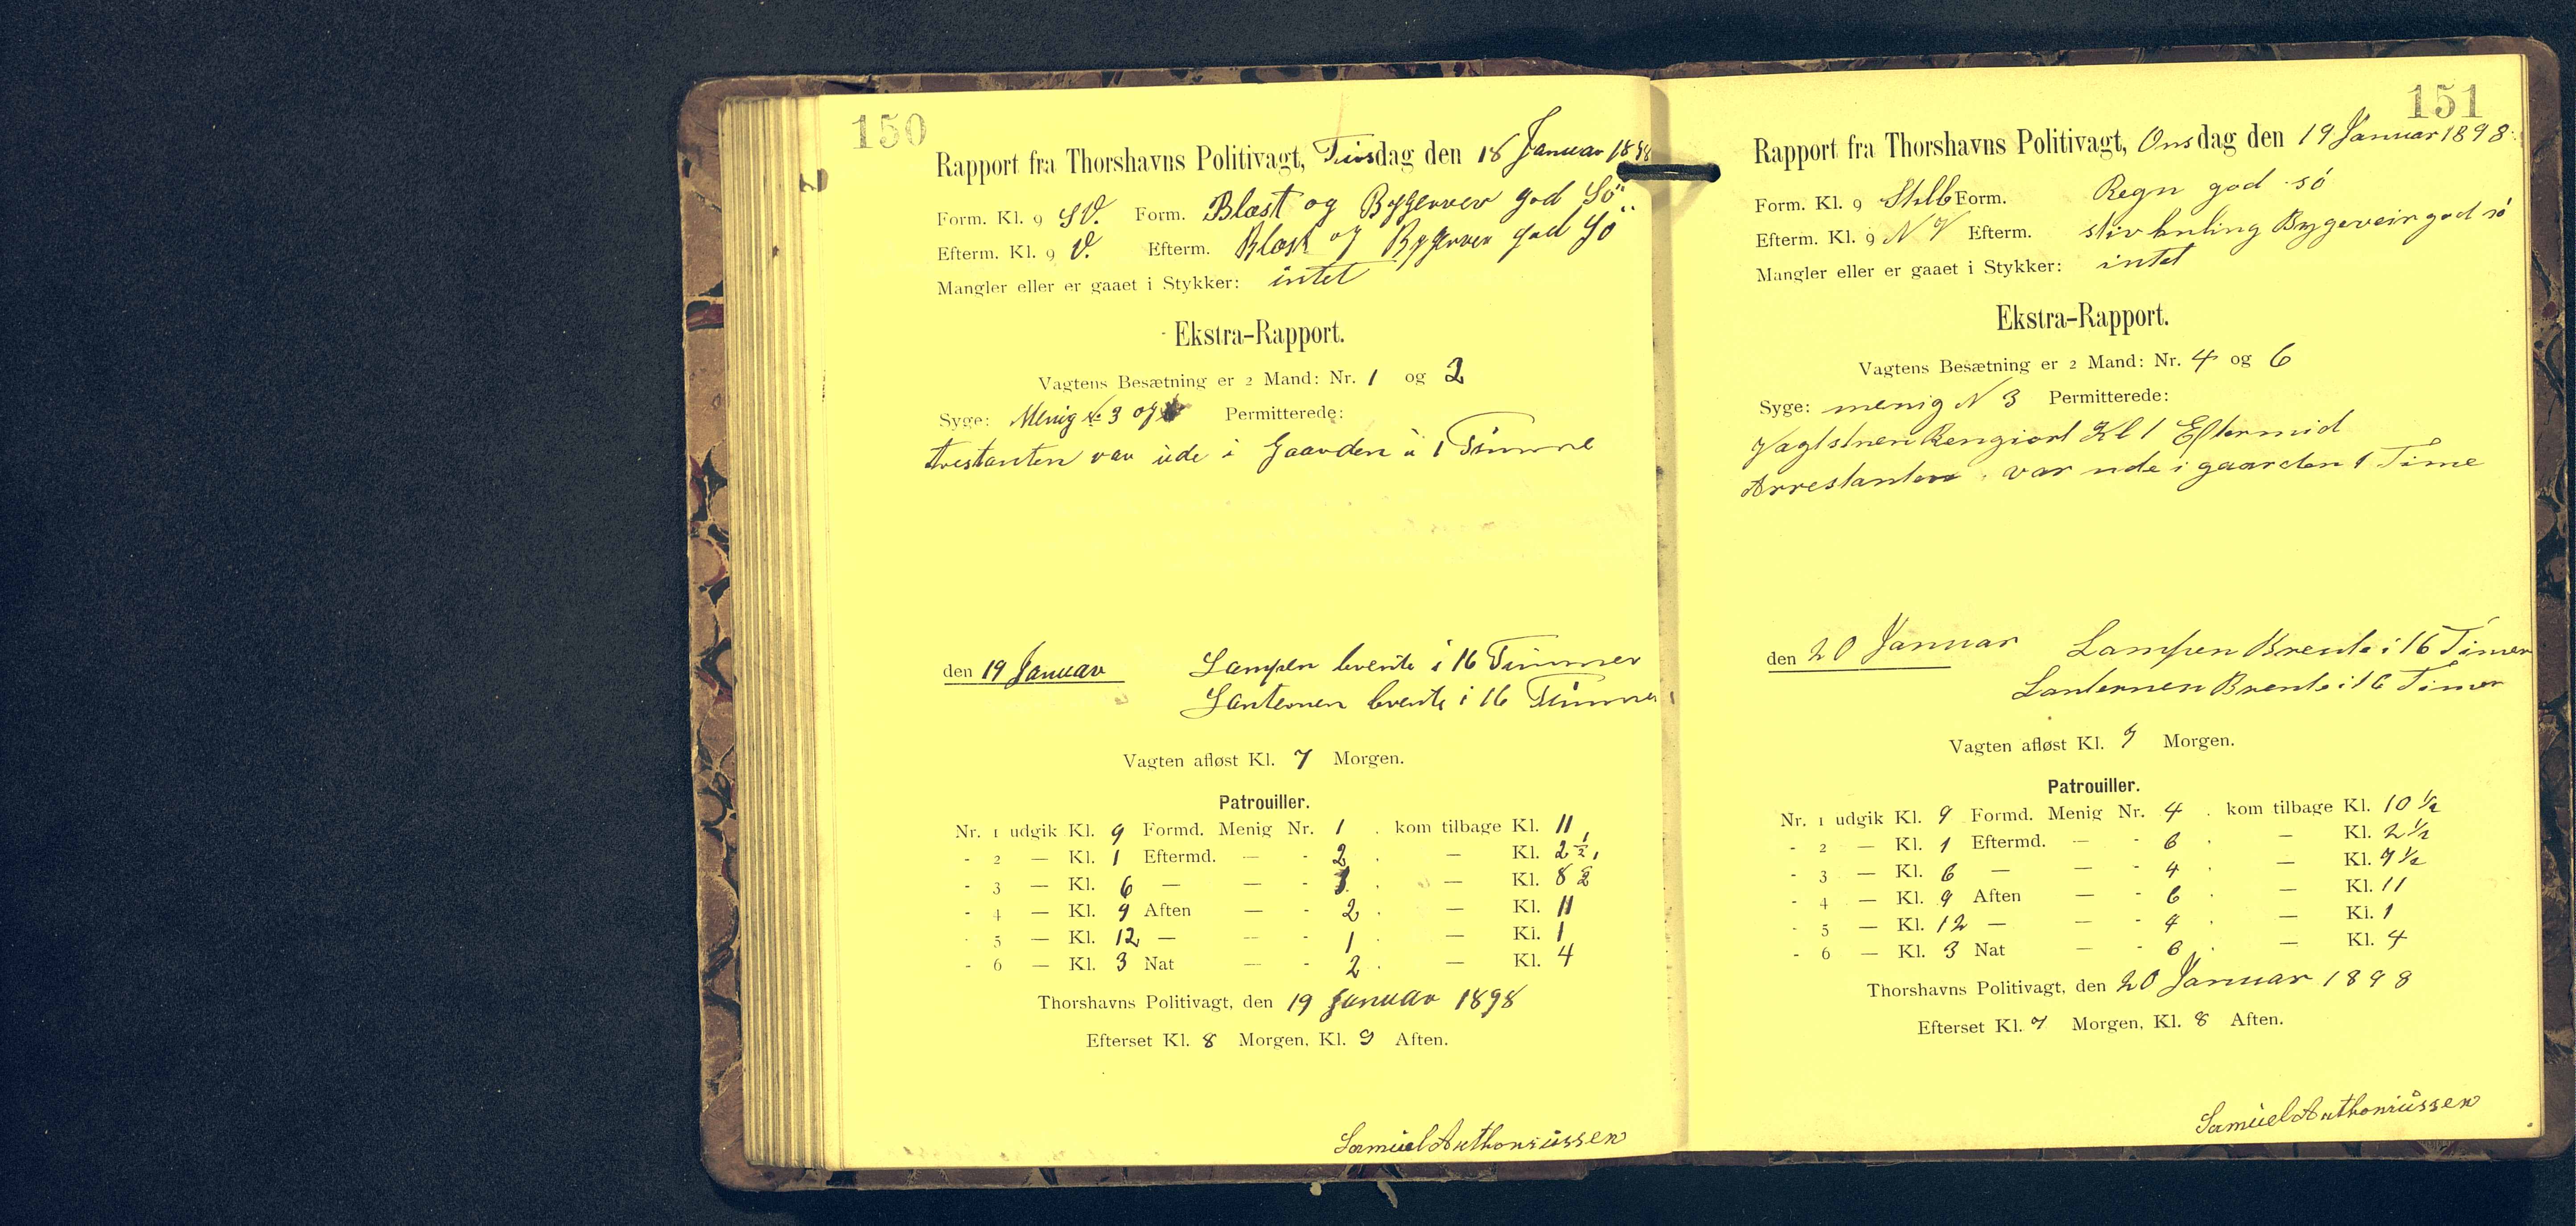 150
Rapport fra Thorshavns Politivagt, Tirsdag den 18 Januar 1898
Form. Kl. 9 SV. Form. Blæst og Bygerver god Sö
Efterm. Kl. 9 V. Efterm. Blæst og Bygerver god Sö
Mangler eller er gaaet i Stykker: intet
Ekstra-Rapport.
Vagtens Besætning er 2 Mand: Nr. 1 og 2
Syge: Menig № 3 og Permitterede:
Arestanten var ude i Gaarden i 1 Timme
den 19 Januar Lampen brente i 16 Timmer
Lanternen brente i 16 Timmer
Vagten afløst Kl. 7 Morgen.
Patrouiller.
Nr. 1 udgik Kl. 9 Formd. Menig Nr. 1 . kom tilbage Kl. 11
- 2 — Kl. 1 Eftermd. — - 2 . — Kl. 2 1/2
- 3 — Kl. 6 — — - 1 . — Kl. 8
- 4 — Kl. 9 Aften — - 2 . — Kl. 11
- 5 — Kl. 12 — — - 1 . — Kl. 1
- 6 — Kl. 3 Nat — - 2 . — Kl. 4
Thorshavns Politivagt, den 19 Januar 1898
Efterset Kl. 8 Morgen, Kl. 9 Aften.
Samuel Anthoniussen
151
Rapport fra Thorshavns Politivagt, Onsdag den 19 Januar 1898
Form. Kl. 9 Stille Form. Regn god só
Efterm. Kl. 9 N V Efterm. stiv kuling Bygeveir god só
Mangler eller er gaaet i Stykker: intet
Ekstra-Rapport.
Vagtens Besætning er 2 Mand: Nr. 4 og 6
Syge: menig N 3 Permitterede:
Vagtstuen Rengiort Kl 1 Eftermid
Arrestanten var ude i gaarden 1 Time
den 20 Januar Lampen Brente i 16 Timer
Lanternen Brente i 16 Timer
Vagten afløst Kl. 7 Morgen.
Patrouiller.
Nr. 1 udgik Kl. 9 Formd. Menig Nr. 4 . kom tilbage Kl. 10 1/2
- 2 — Kl. 1 Eftermd. — - 6 . — Kl. 2 1/2
- 3 — Kl. 6 — — - 4 . — Kl. 7 1/2
- 4 — Kl. 9 Aften — - 6 . — Kl. 11
- 5 — Kl. 12 — — - 4 . — Kl. 1
- 6 — Kl. 3 Nat — - 6 . — Kl. 4
Thorshavns Politivagt, den 20 Januar 1898
Efterset Kl. 7 Morgen, Kl. 8 Aften.
Samuel Anthoniussen